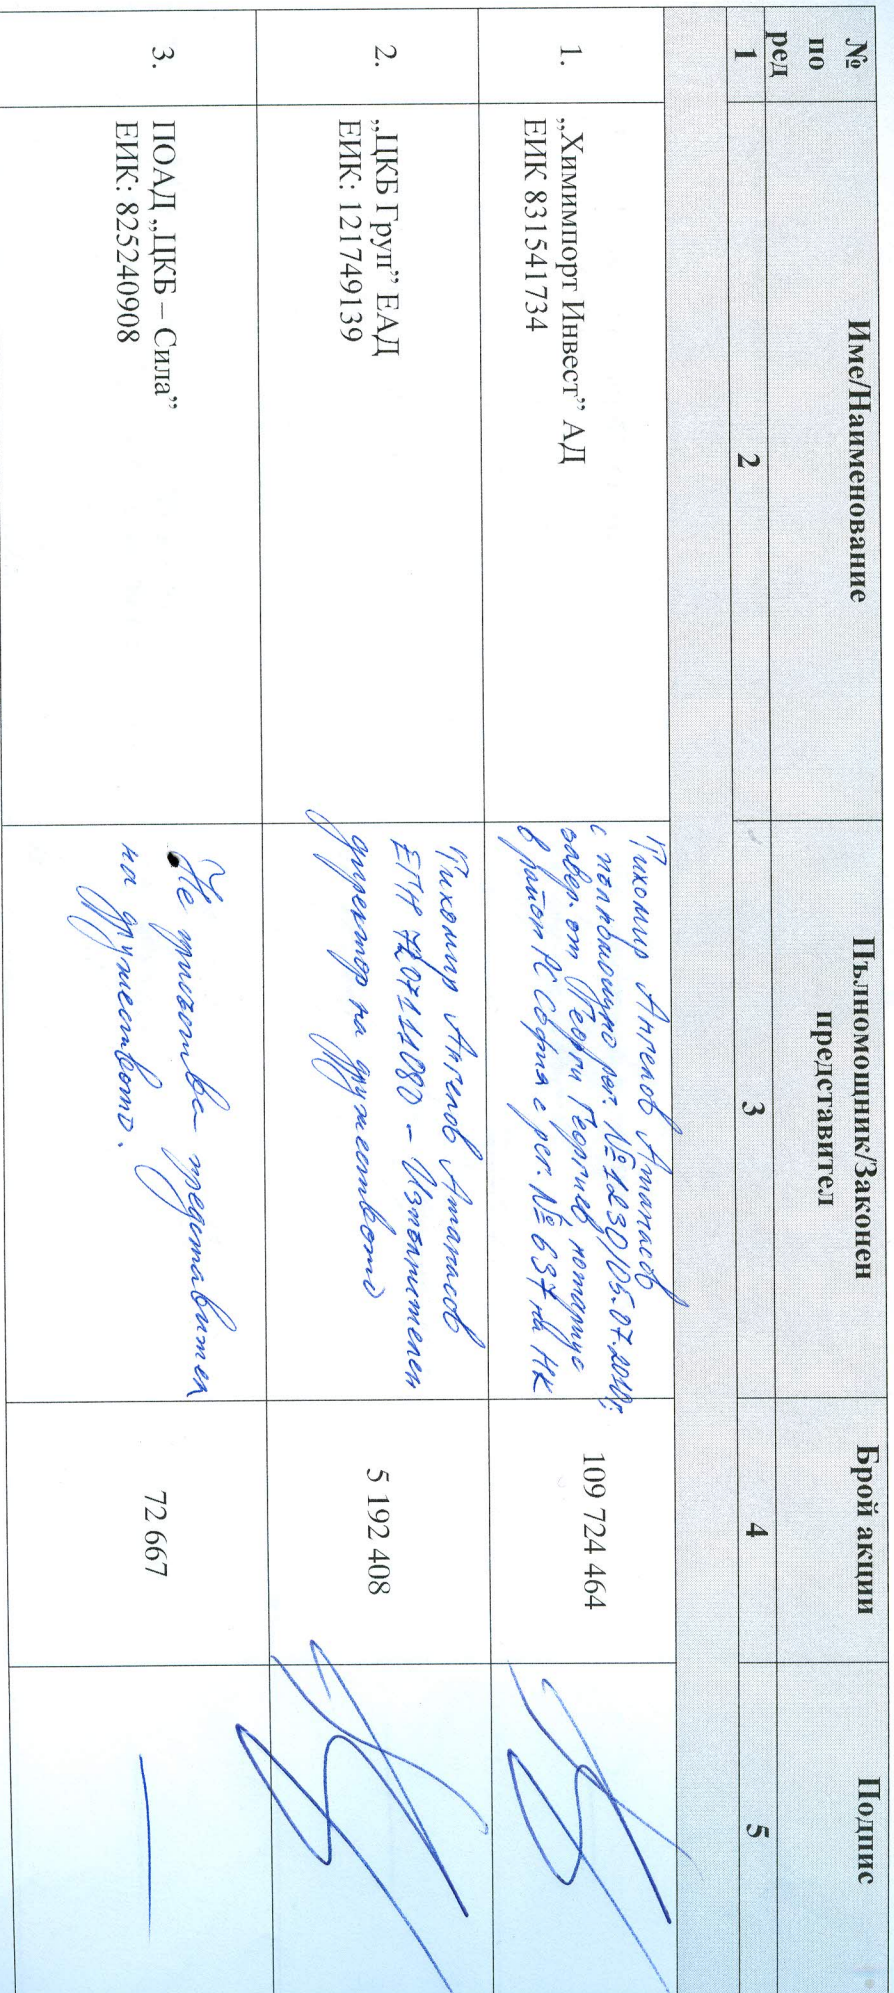 № по ред
Име/Наименование
Пълномощник/Законен представител
Брой акции
Подпис
1
2
3
4
5
1.
„Химимпорт Инвест” АД
ЕИК 831541734
Тихомир Ангелов Атанасов
с пълномощно рег. № 1230/05.07.2010г.
завер. от Георги Георгиев нотариус
в район РС София с рег. № 637 на НК
109 724 464
2.
„ЦКБ Груп” ЕАД
ЕИК: 121749139
Тихомир Ангелов Атанасов
ЕГН 7207111080 – Изпълнителен
директор на дружеството
5 192 408
3.
ПОАД „ЦКБ – Сила”
ЕИК: 825240908
Не присъства представител
на дружеството.
72 667
—